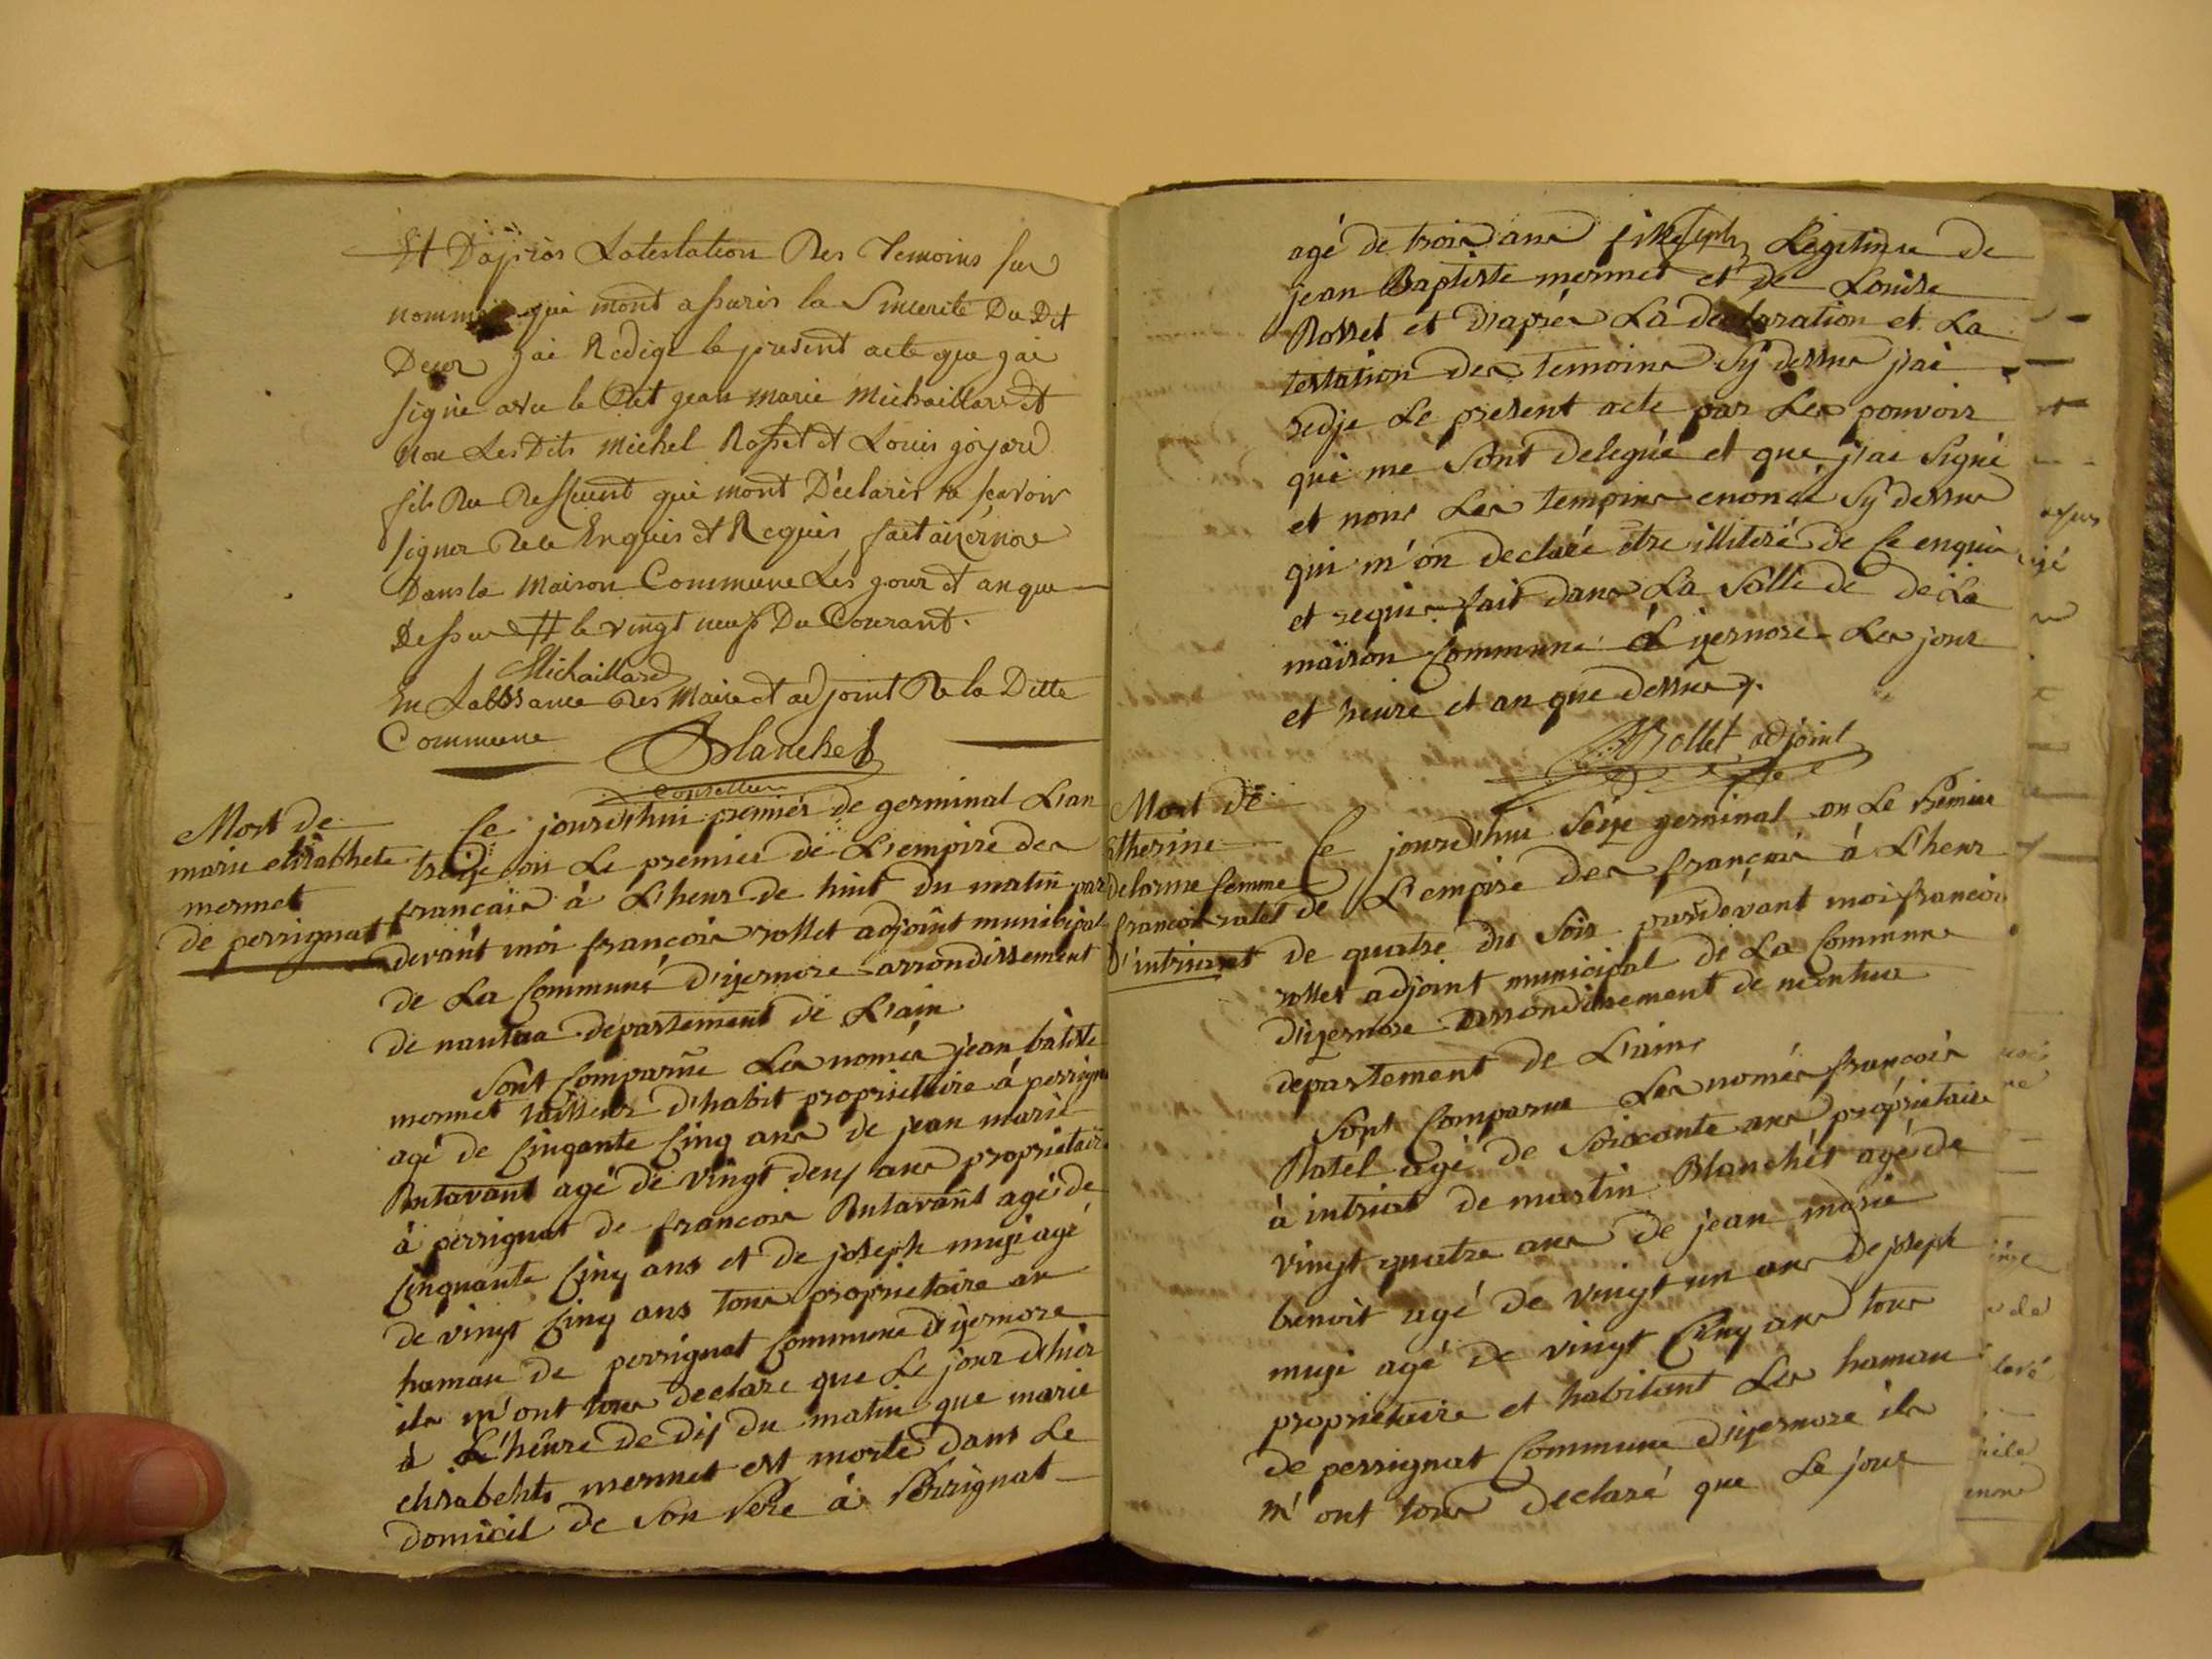 Et Dapiròs Latestation Des Temoins sus
nommés qui mont assurés la Sincerité Du Dit
Deces jai Redigé le present acte que jai
signé avec le Cit jean marie Michaillard et
non Les Dits Michel Rosset et Louis goyard
fils Du Deffunt qui mont Déclarés ne scavoir
signer De ce Enquis et Requis fait aizernore
Dans la Maison Commune Les jour et an que
Dessus # le vingt neuf Du Courant.
Michaillard
En Labssance des Maire et adjoint De la Ditte
Commune Blanchet
Conseiller
Mort de
marie elisabhete
mermet
de perrignat
Ce jourd'hui premiér de germinal L'an
treize ou Le premier de L'empire des
francais à L'heur de huit du matin par
devant moi francois rollet adjoint municipal
de La Commune d'izernore arrondissement
de nantua departement de L'ain
Sont Comparue Les només jean batiste
mermet tailleur d'habit proprietaire á perrigna
agé de Cinqante Cinq ans de jean marie
Butavant agé de vingt deux ans proprietaire
à perrignat de francois Butavant agé de
Cinquante Cinq ans et de joseph muzi agé
de vingt Cinq ans tous proprietaire au
hamau de perrignat Commune d'izernore
ils m'ont tous declare que Le jour dhier
à L'heure de dix du matin que marie
elisabehte mermet est morte dans Le
domicil de Son Pere à Perrignat
agé de trois ans fille Legitime de
jean Baptiste mermet et de Louise
Rosset et d'aprés La declaration et La
testation des temoins Sy dessus j'ai
redje Le present acte par Les pouvoir
qui me Sont delegué et que j'ai Signé
et nons Les temoins enoncé Sy dessus
qui m'on declaré etre illiteré de Ce enquis
et requis fait dans La Salle de de La
maison Commune d'izernore Les jour
et heure et an que dessus
Rollet adjoint
Mort de
atherine
delorme femme
francois ratel
d'intriat
Ce jourd'hui Seize germinal ou Le Premier
de L'empire des francais á L'heur
de quatre du Soir pardevant moi francois
rollet adjoint municipal de La Commune
d'izernore arrondissement de nantua
departement de L'ain
Sont Comparue Les només francois
Ratel agé de Soixante ans proprietaire
à intriat de martin Blanchet agé de
vingt quatre ans de jean marie
benoit agé de vingt un ans de joseph
muzi agé de vingt Cinq ans tous
proprietaire et habitant Les hamau
de perrignat Commune d'izernore ils
m'ont tous declaré que Le jour